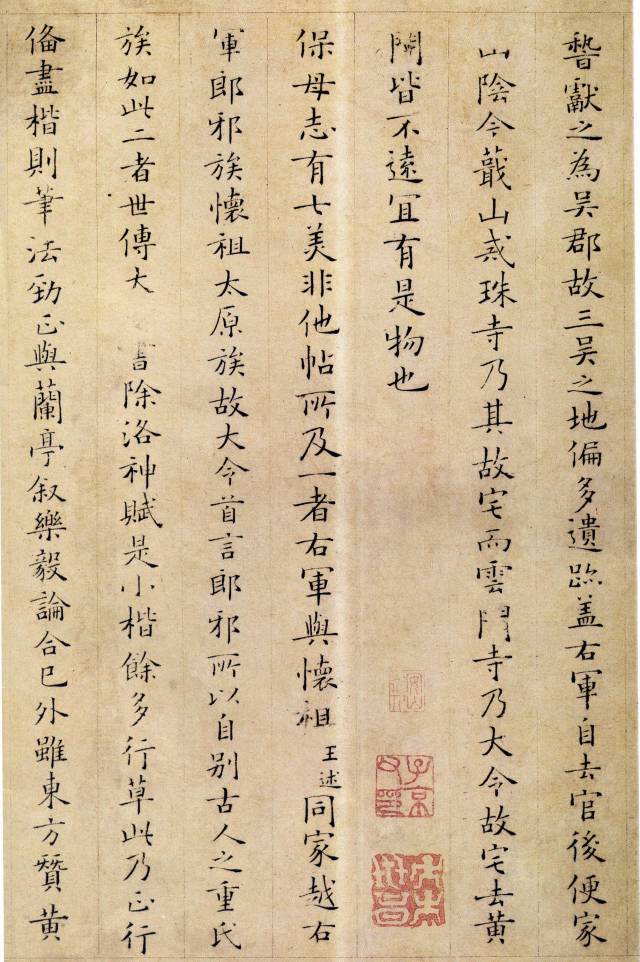 獻之為吳郡故三吳之地偏多遺跡盖右軍自去官後便家
山陰今蕺山戒珠寺乃其故宅而雲門寺乃大令故宅去黄
閍皆不遠宜有是物也
保母志有七美非他帖所及一者右軍與懷祖王述同家越右
軍郎邪族懷祖太原族故大令首言郎邪所以自别古人之重氏
族如此二者世傳大書除洛神賦是小楷餘多行草此乃正行
俻盡楷則筆法勁正與蘭亭叙樂毅論合已外雖東方贊黄
子京父印